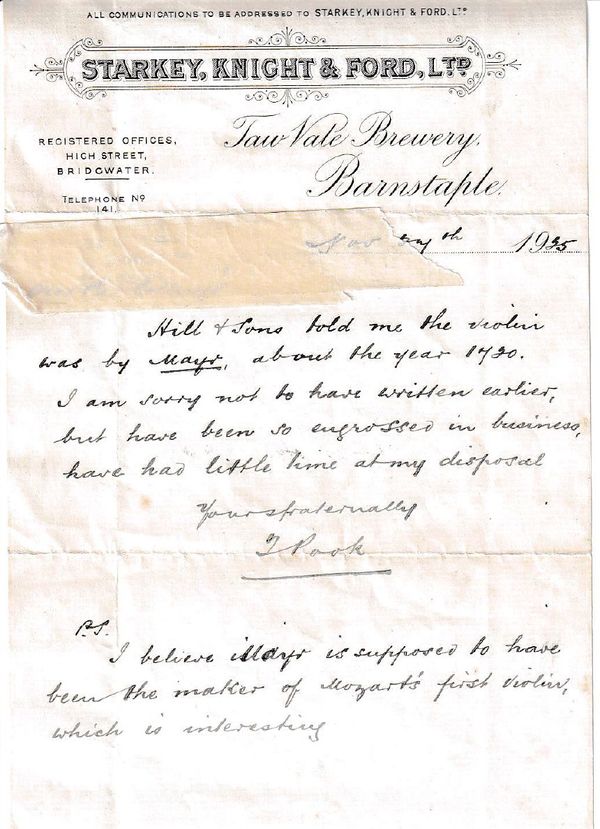 ALL COMMUNICATIONS TO BE ADDRESSED TO STARKEY, KNIGHT & FORD, LTD
STARKEY, KNIGHT & FORD, LTD
REGISTERED OFFICES,
HIGH STREET,
BRIDGWATER.
TELEPHONE No
141.
Taw Vale Brewery,
Barnstaple.
Nov th 1925
Hill & Sons told me the violin
was by Mayr, about the year 1720.
I am sorry not to have written earlier,
but have been so engrossed in business,
have had little time at my disposal
Yours fraternally
J Pook
P.S.
I believe Mayr is supposed to have
been the maker of Mozart's first violin,
which is interesting